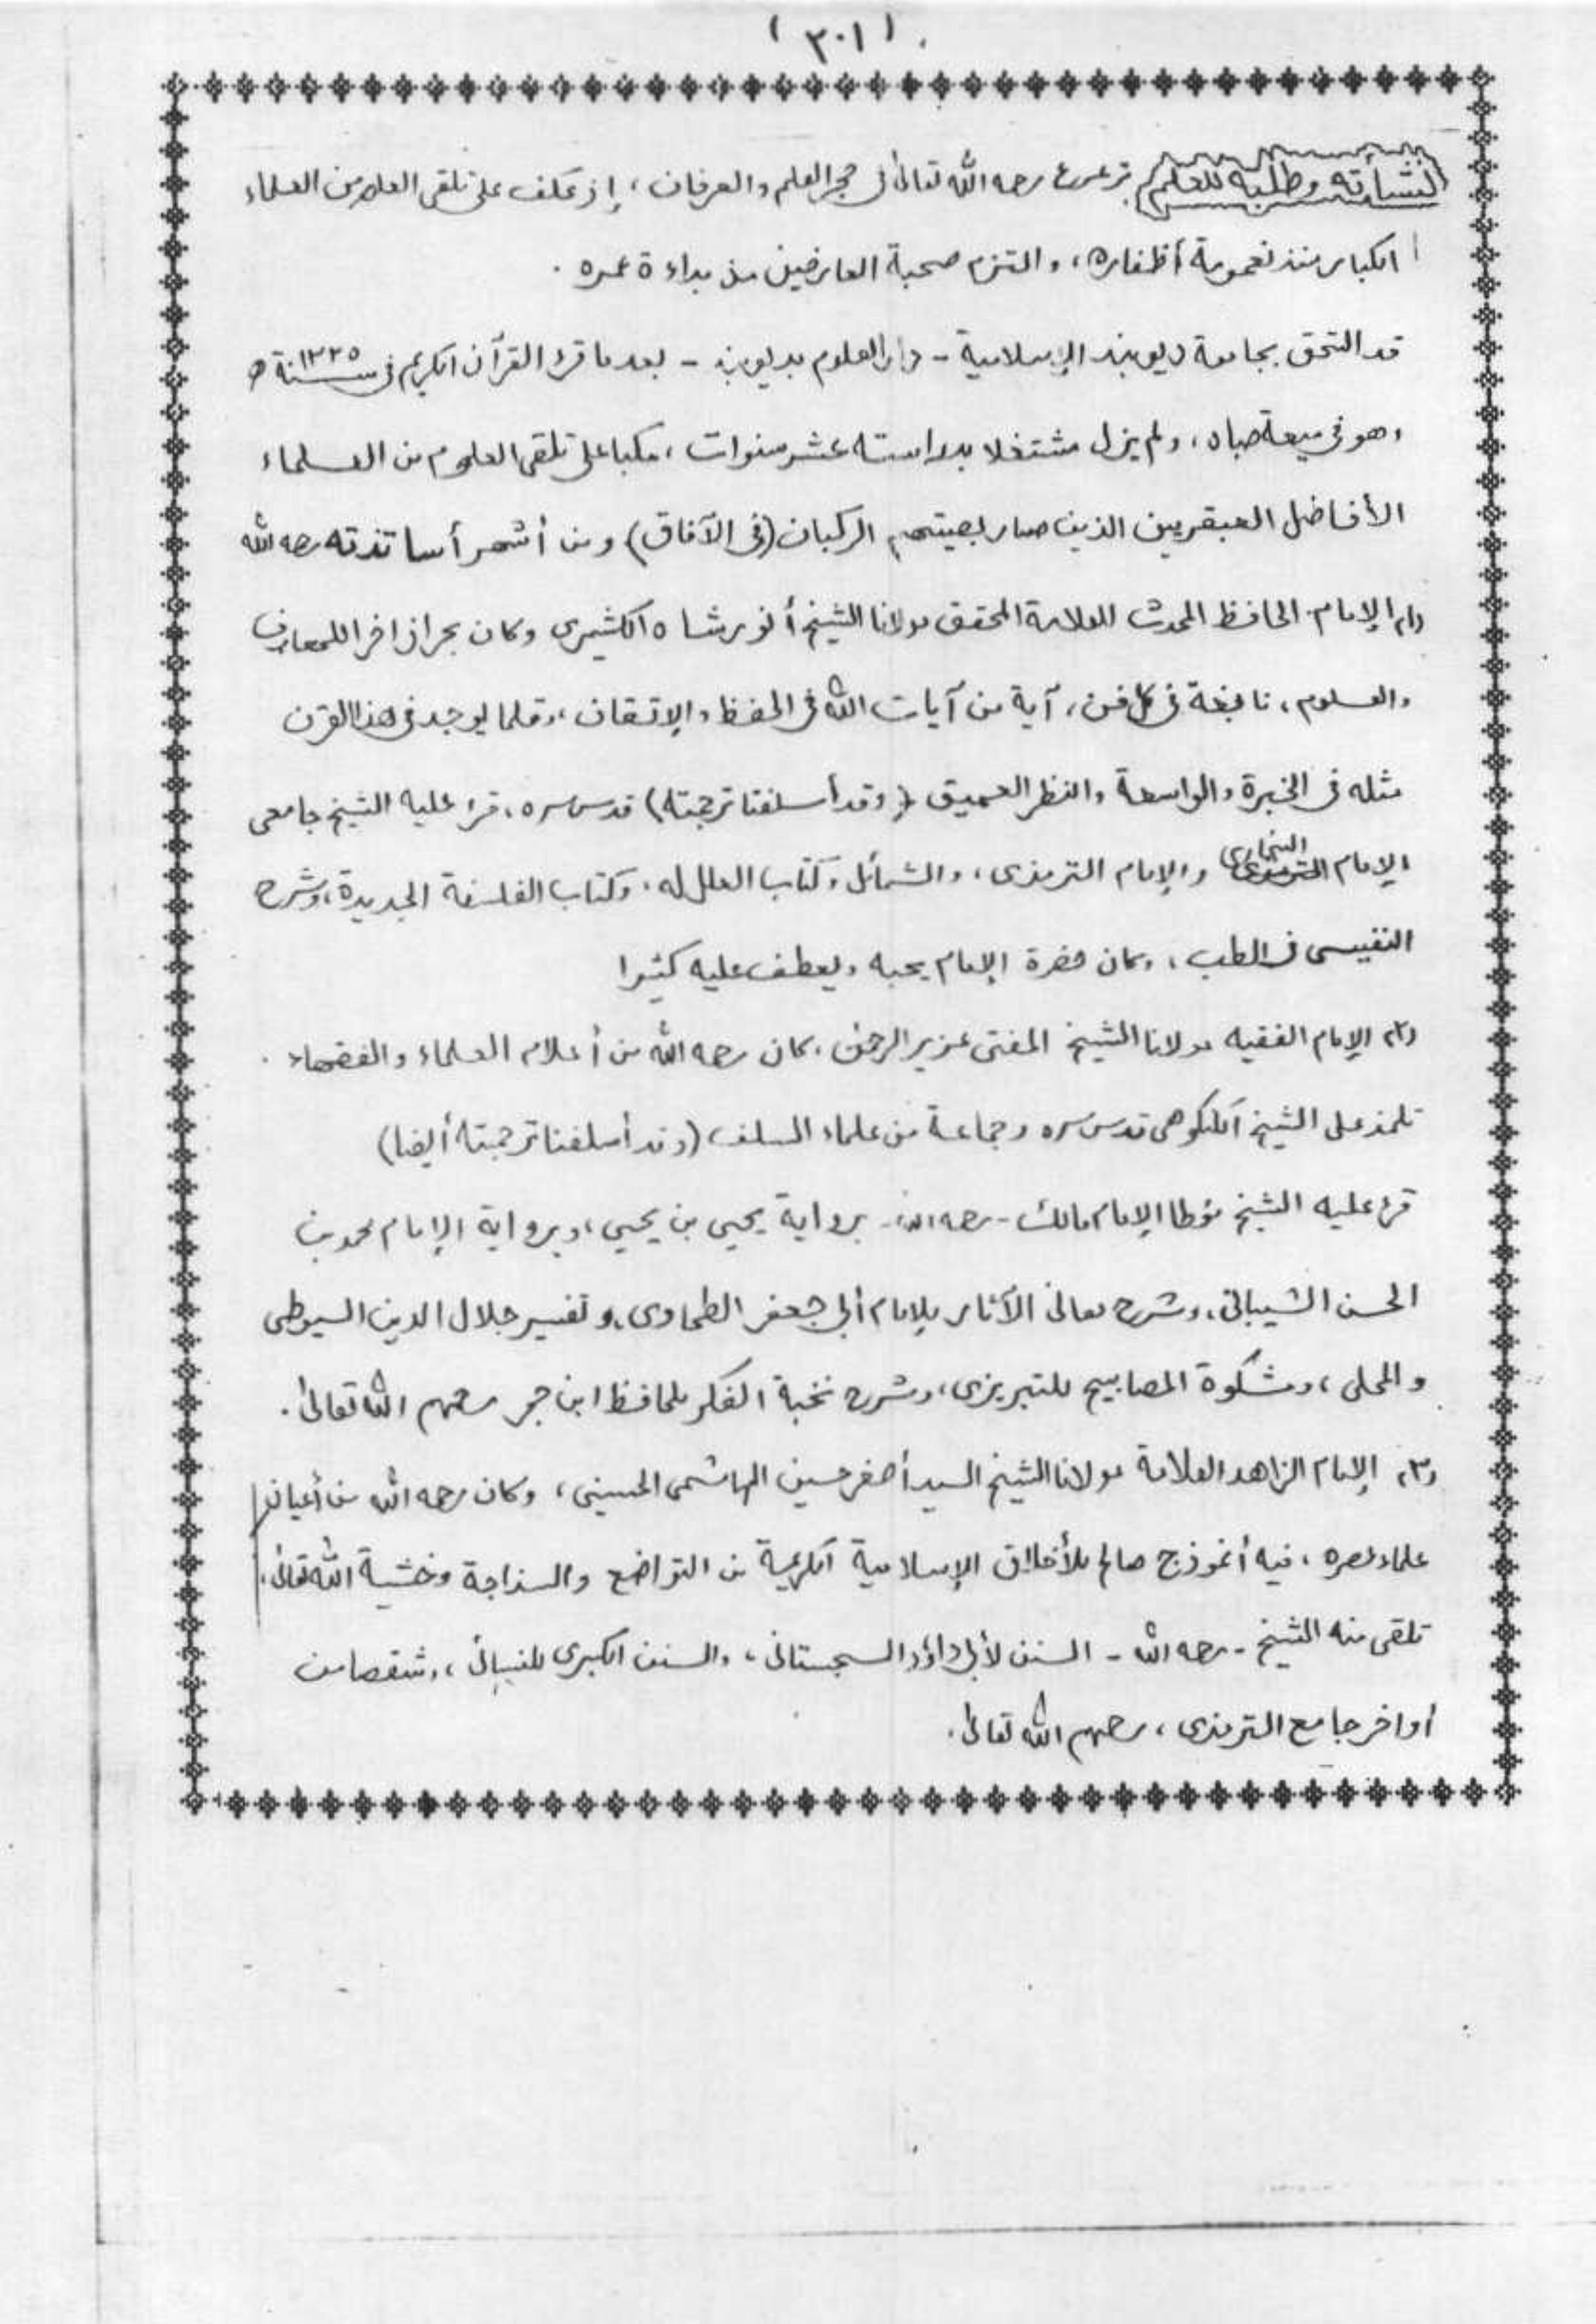 (٣٠١)
نشأته وطلبه للعلم ترعرع رحمه الله تعالى فى حجر العلم والعرفان، إذ عكف على تلقى العلوم من العلماء
الكبار منذ نعومة أظفاره، والتزم صحبة العارفين من بداءة عمره.
قد التحق بجامعة ديوبند الإسلامية - دار العلوم بديوبند - بعد ما قرء القرآن الكريم فى سنة ١٣٢٥ ھ
وهو فى ميعة صباه، ولم يزل مشتغلا بدراسته عشر سنوات، مكبا على تلقى العلوم من العلماء
الأفاضل العبقريين الذين صار بصيتهم الركبان (فى الآفاق) ومن أشهر أساتذته رحمه الله
(١) الإمام الحافظ المحدث العلامة المحقق مولانا الشيخ أنور شاه الكشميرى وكان بحرا زاخرا للمعارف
والعلوم، نابغة فى كل فن، آية من آيات الله فى الحفظ والإتقان، وقلما يوجد فى هذا القرن
مثله فى الخبرة والواسعة والنظر العميق (وقد أسلفنا ترجمته) قدس سره، قرء عليه الشيخ جامعى
الإمام البخارى والإمام الترمذى، والشمائل وكتاب العلل له، وكتاب الفلسفة الجديدة، وشرح
النفيسى فى الطب، وكان حضرة الإمام يحبه ويعطف عليه كثيرا
(٢) الإمام الفقيه مولانا الشيخ المفتى عزيز الرحمن، كان رحمه الله من أعلام العلماء والفقهاء.
تلمذ على الشيخ الكنكوهى قدس سره وجماعة من علماء السلف (وقد أسلفنا ترجمته أيضا)
قرء عليه الشيخ مؤطا الإمام مالك - رحمه الله - برواية يحيى بن يحيى، وبرواية الإمام محمد بن
الحسن الشيبانى، وشرح معانى الآثار للإمام أبى جعفر الطحاوى، وتفسير جلال الدين السيوطى
والمحلى، ومشكوة المصابيح للتبريزى، وشرح نخبة الفكر للحافظ ابن حجر رحمهم الله تعالى.
(٣) الإمام الزاهد العلامة مولانا الشيخ السيد أصغر حسين الهاشمى الحسينى، وكان رحمه الله من أعيان
علماء عصره، فيه أنموذج صالح للأخلاق الإسلامية الكريمة من التواضع والسذاجة وخشية الله تعالى،
تلقى منه الشيخ - رحمه الله - السنن لأبى داؤد السجستانى، والسنن الكبرى للنسائى، وشقصا من
أواخر جامع الترمذى، رحمهم الله تعالى.